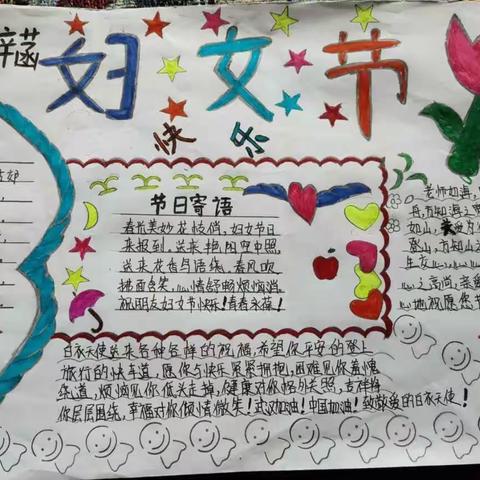 辛菡
妇女节
快乐
节日寄语
春光美妙花枝俏,妇女节日
来报到,送来艳阳空中照,
送来花香与语绕,春风吹
拂面含笑,心情舒畅烦恼消,
祝朋友妇女节快乐!青春永葆!
老师如海,
舟,方知海之
如山,
登山,方知山之
生友
之高尚,亲
地祝愿您节
白衣天使送来各种各样的祝福,希望你平安的登上
旅行的快车道,愿你与快乐紧紧拥抱,困难见你羞愧
绕道,烦恼见你低头走掉,健康对你格外关照,吉祥将
你层层围绕,幸福对你倾情微笑!武汉加油!中国加油!致敬爱的白衣天使!